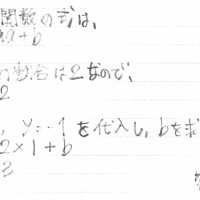 関数の式は、
a+b
の割合は2なので、
2
, y=-1を代入し、bを求
2×1+b
3